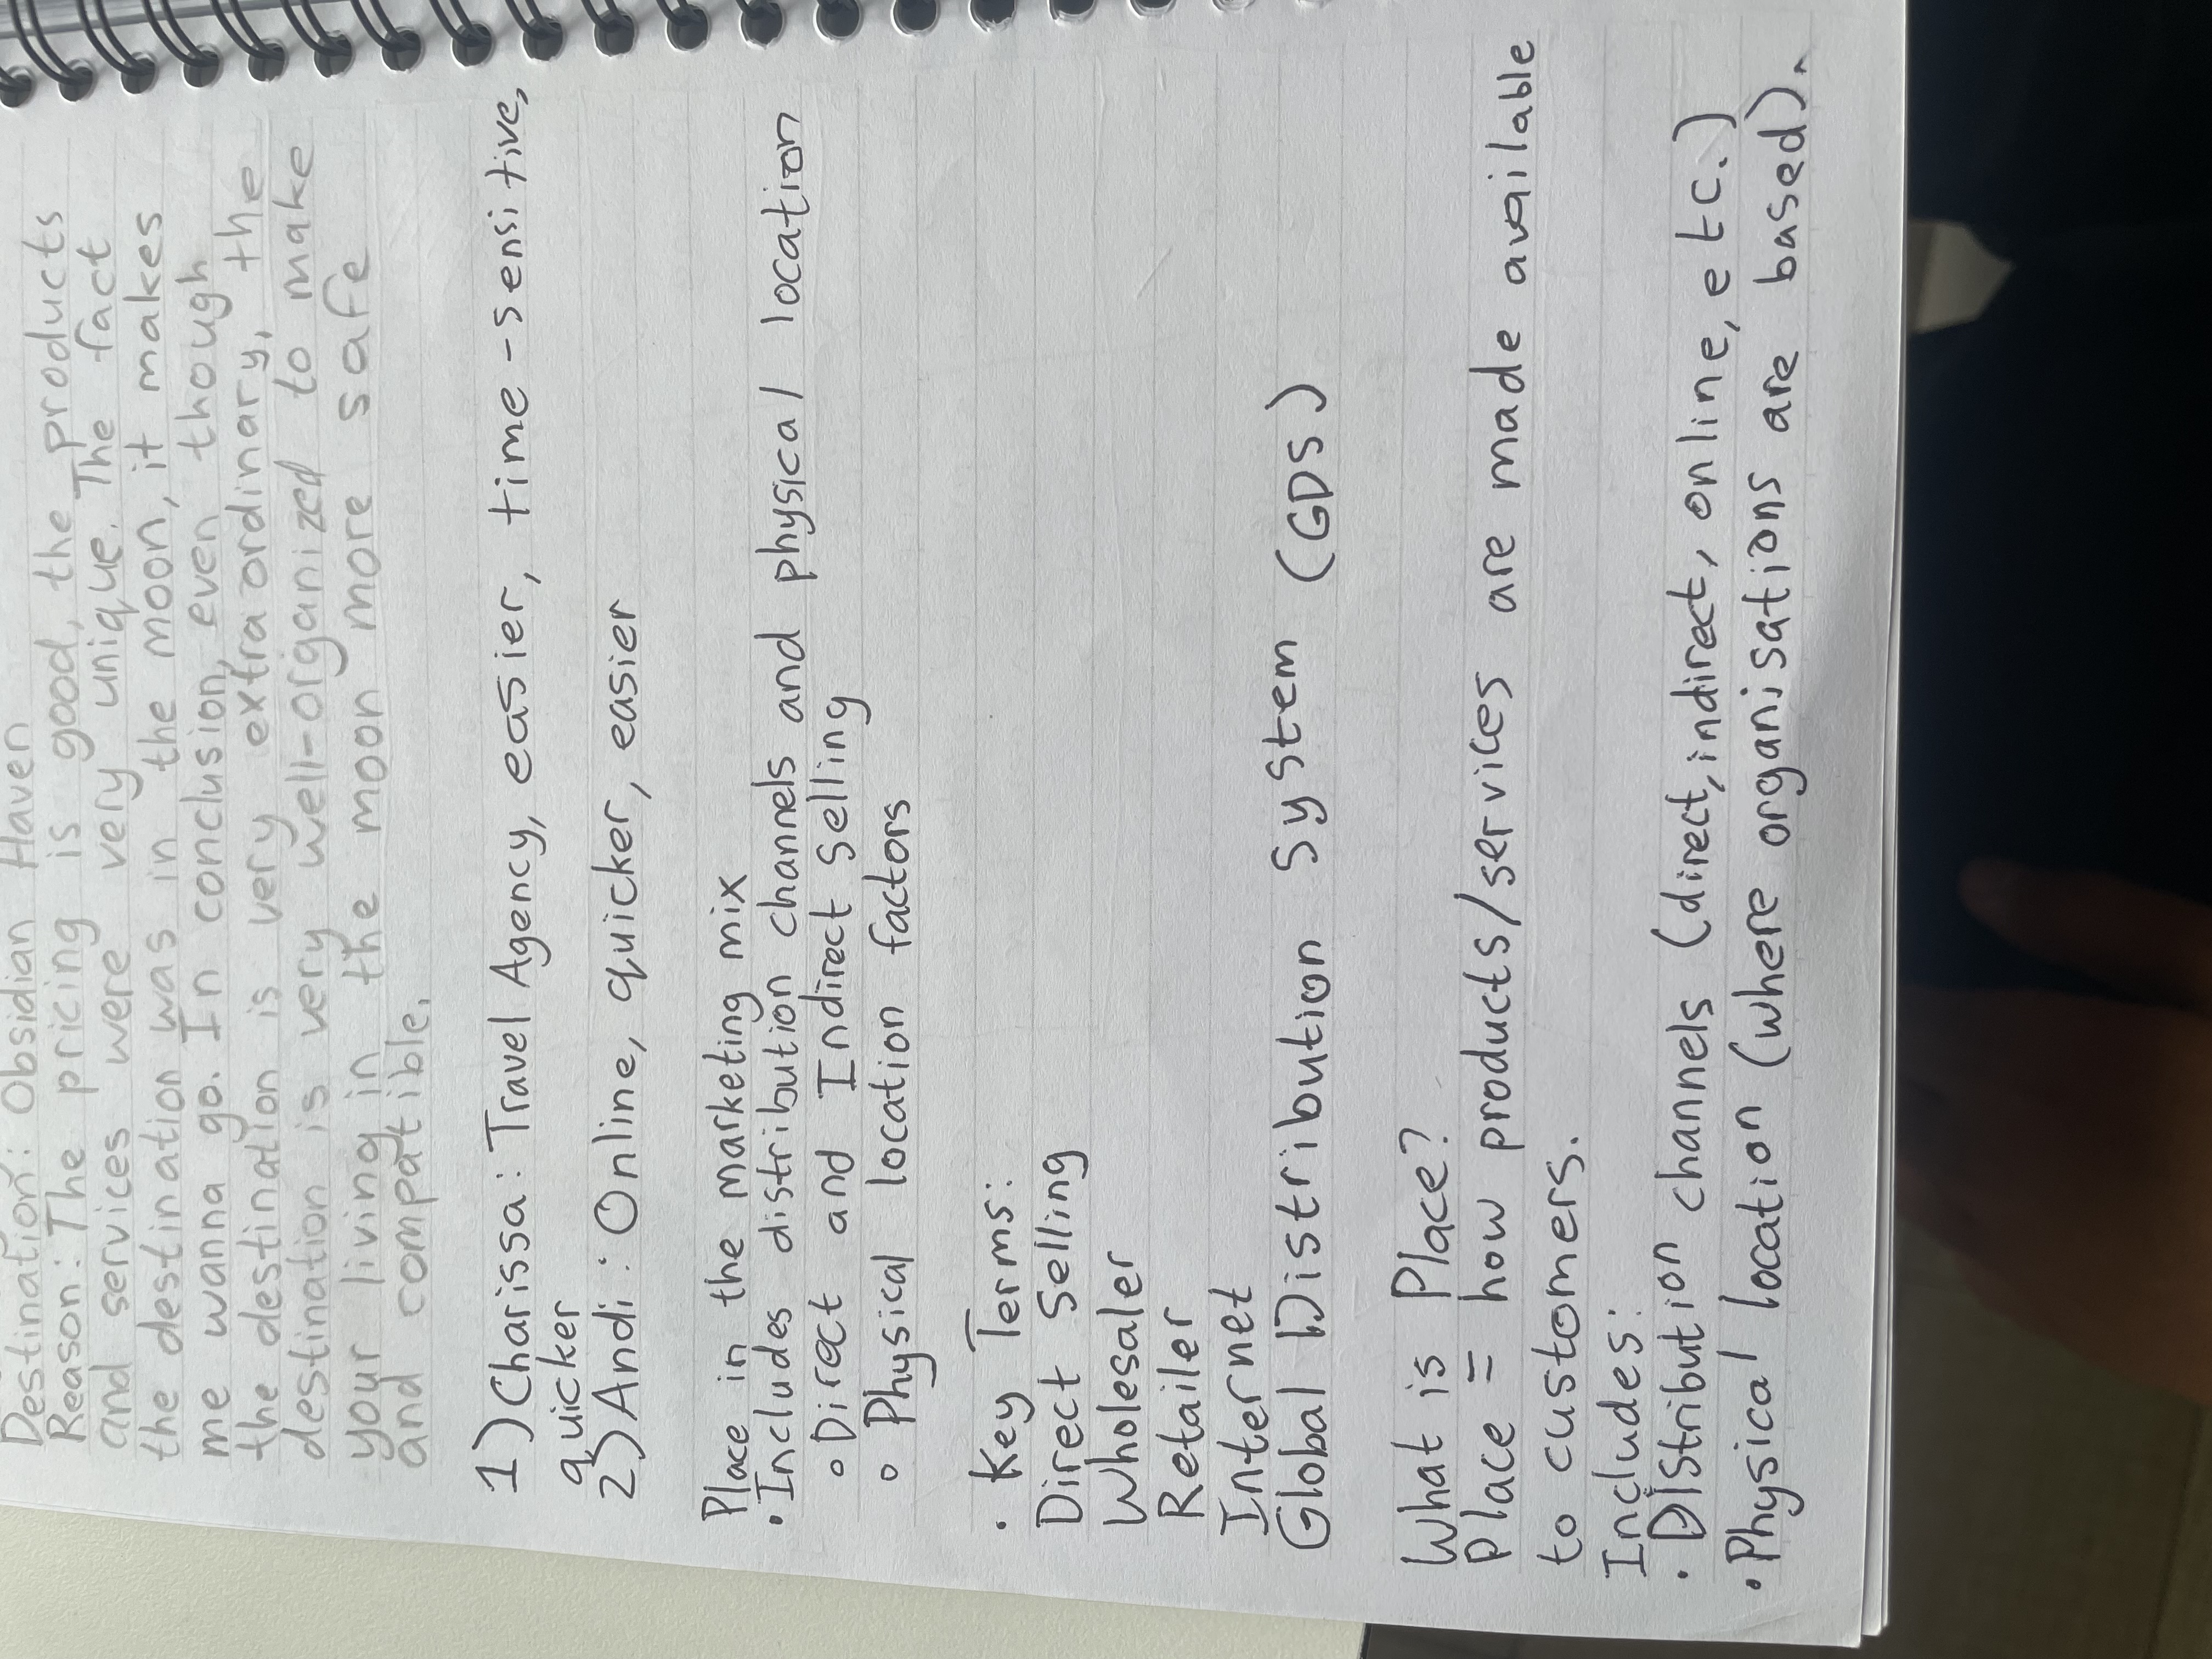 Destination: Obsidian Haven
Reason: The pricing is good, the products
and services were very unique. The fact
the destination was in the moon, it makes
me wanna go. In conclusion, even though
the destination is very extraordinary, the
destination is very well-organized to make
your living in the moon more safe
and compatible.
1) Charissa: Travel Agency, easier, time-sensitive,
quicker
2) Andi: Online, quicker, easier
Place in the marketing mix
• Includes distribution channels and physical location
◦ Direct and Indirect Selling
◦ Physical location factors
• Key Terms:
Direct Selling
Wholesaler
Retailer
Internet
Global Distribution System (GDS)
What is Place?
Place = how products/services are made available
to customers.
Includes:
• Distribution channels (direct, indirect, online, etc.)
• Physical location (where organisations are based).